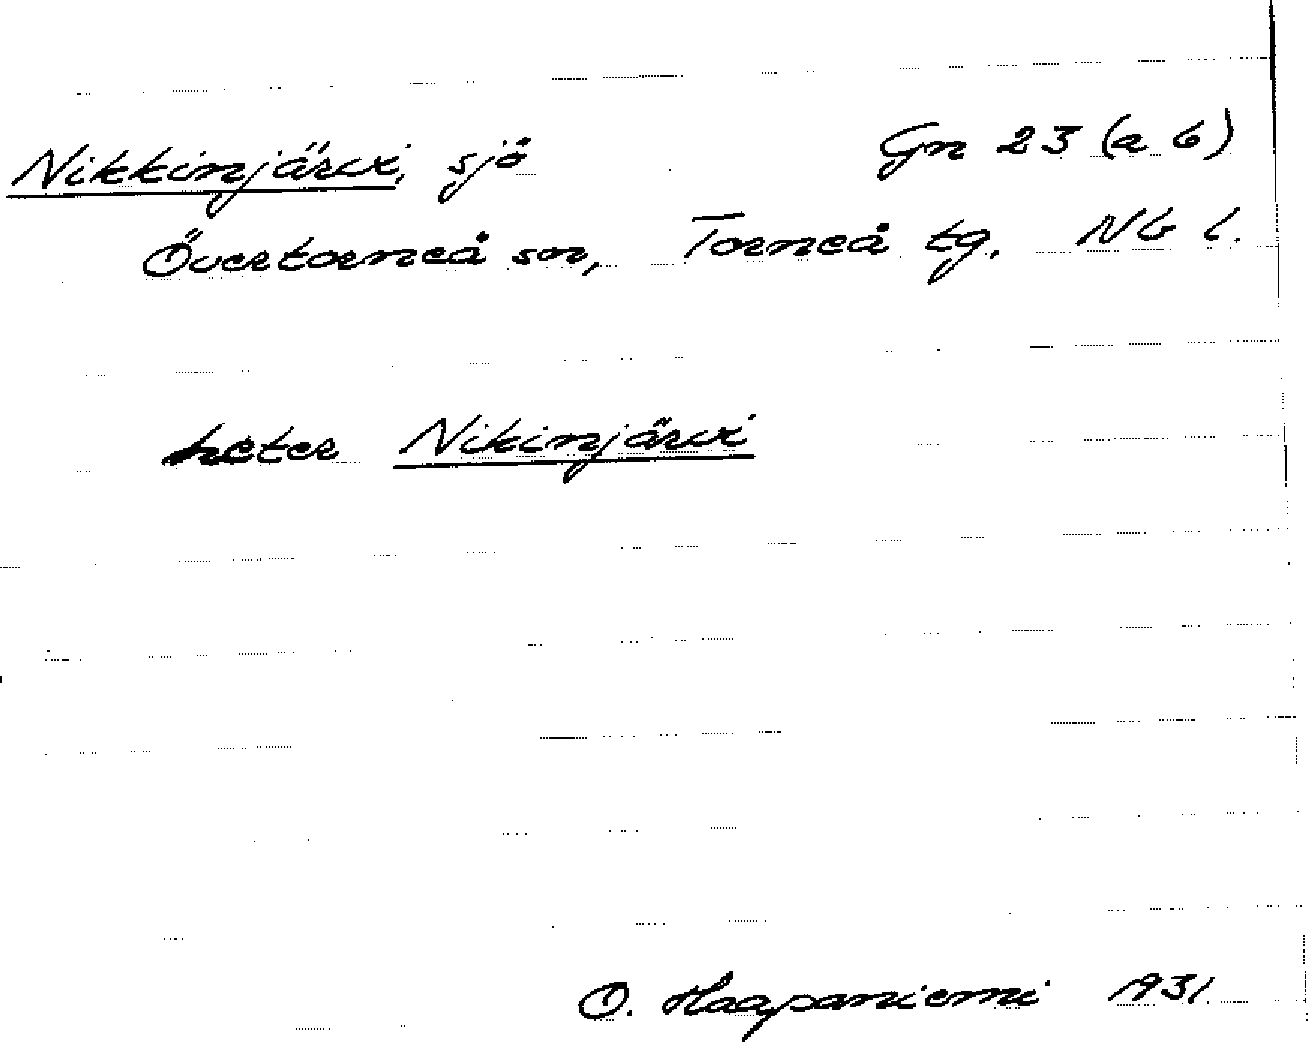 Nikkinjärvi, sjö Gn 23 (a 6)
Övertorneå sn, Torneå tg. Nb l.
heter Nikinjärvi
O. Haapaniemi 1931